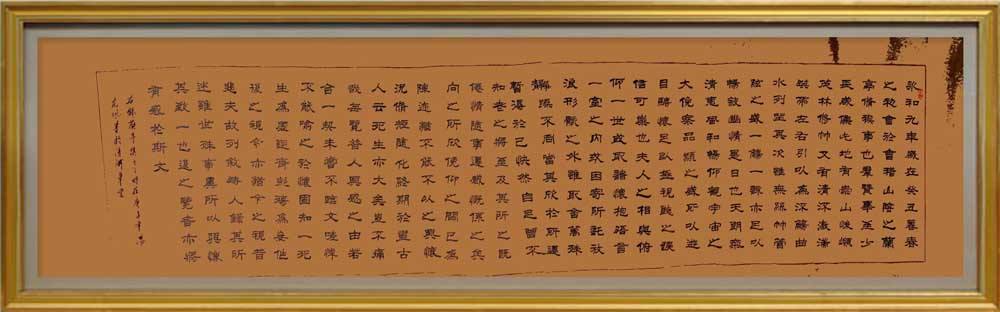 永和九年歲在癸丑暮春
之初會於會稽山陰之蘭
亭脩禊事也羣賢畢至少
長咸集此地有崇山峻嶺
茂林修竹又有清流激湍
映帶左右引以為流觴曲
水列坐其次雖無絲竹管
弦之盛一觴一詠亦足以
暢敘幽情是日也天朗氣
清惠風和暢仰觀宇宙之
大俛察品類之盛所以遊
目騁懷足以極視聽之娛
信可樂也夫人之相與俯
仰一世或取諸懷抱悟言
一室之內或因寄所託放
浪形骸之外雖取舍萬殊
靜躁不同當其欣於所遇
暫得於己快然自足曾不
知老之將至及其所之既
倦情隨事遷感慨係之矣
向之所欣俛仰之間已為
陳迹猶不能不以之興懷
況脩短隨化終期於盡古
人云死生亦大矣豈不痛
哉每覽昔人興感之由若
合一契未嘗不臨文嗟悼
不能喻之於懷固知一死
生為虛誕齊彭殤為妄作
後之視今亦猶今之視昔
悲夫故列敘時人錄其所
述雖世殊事異所以興懷
其致一也後之覽者亦將
有感於斯文